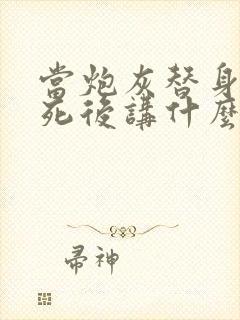 當炮灰替身
死後講什麼
帚神